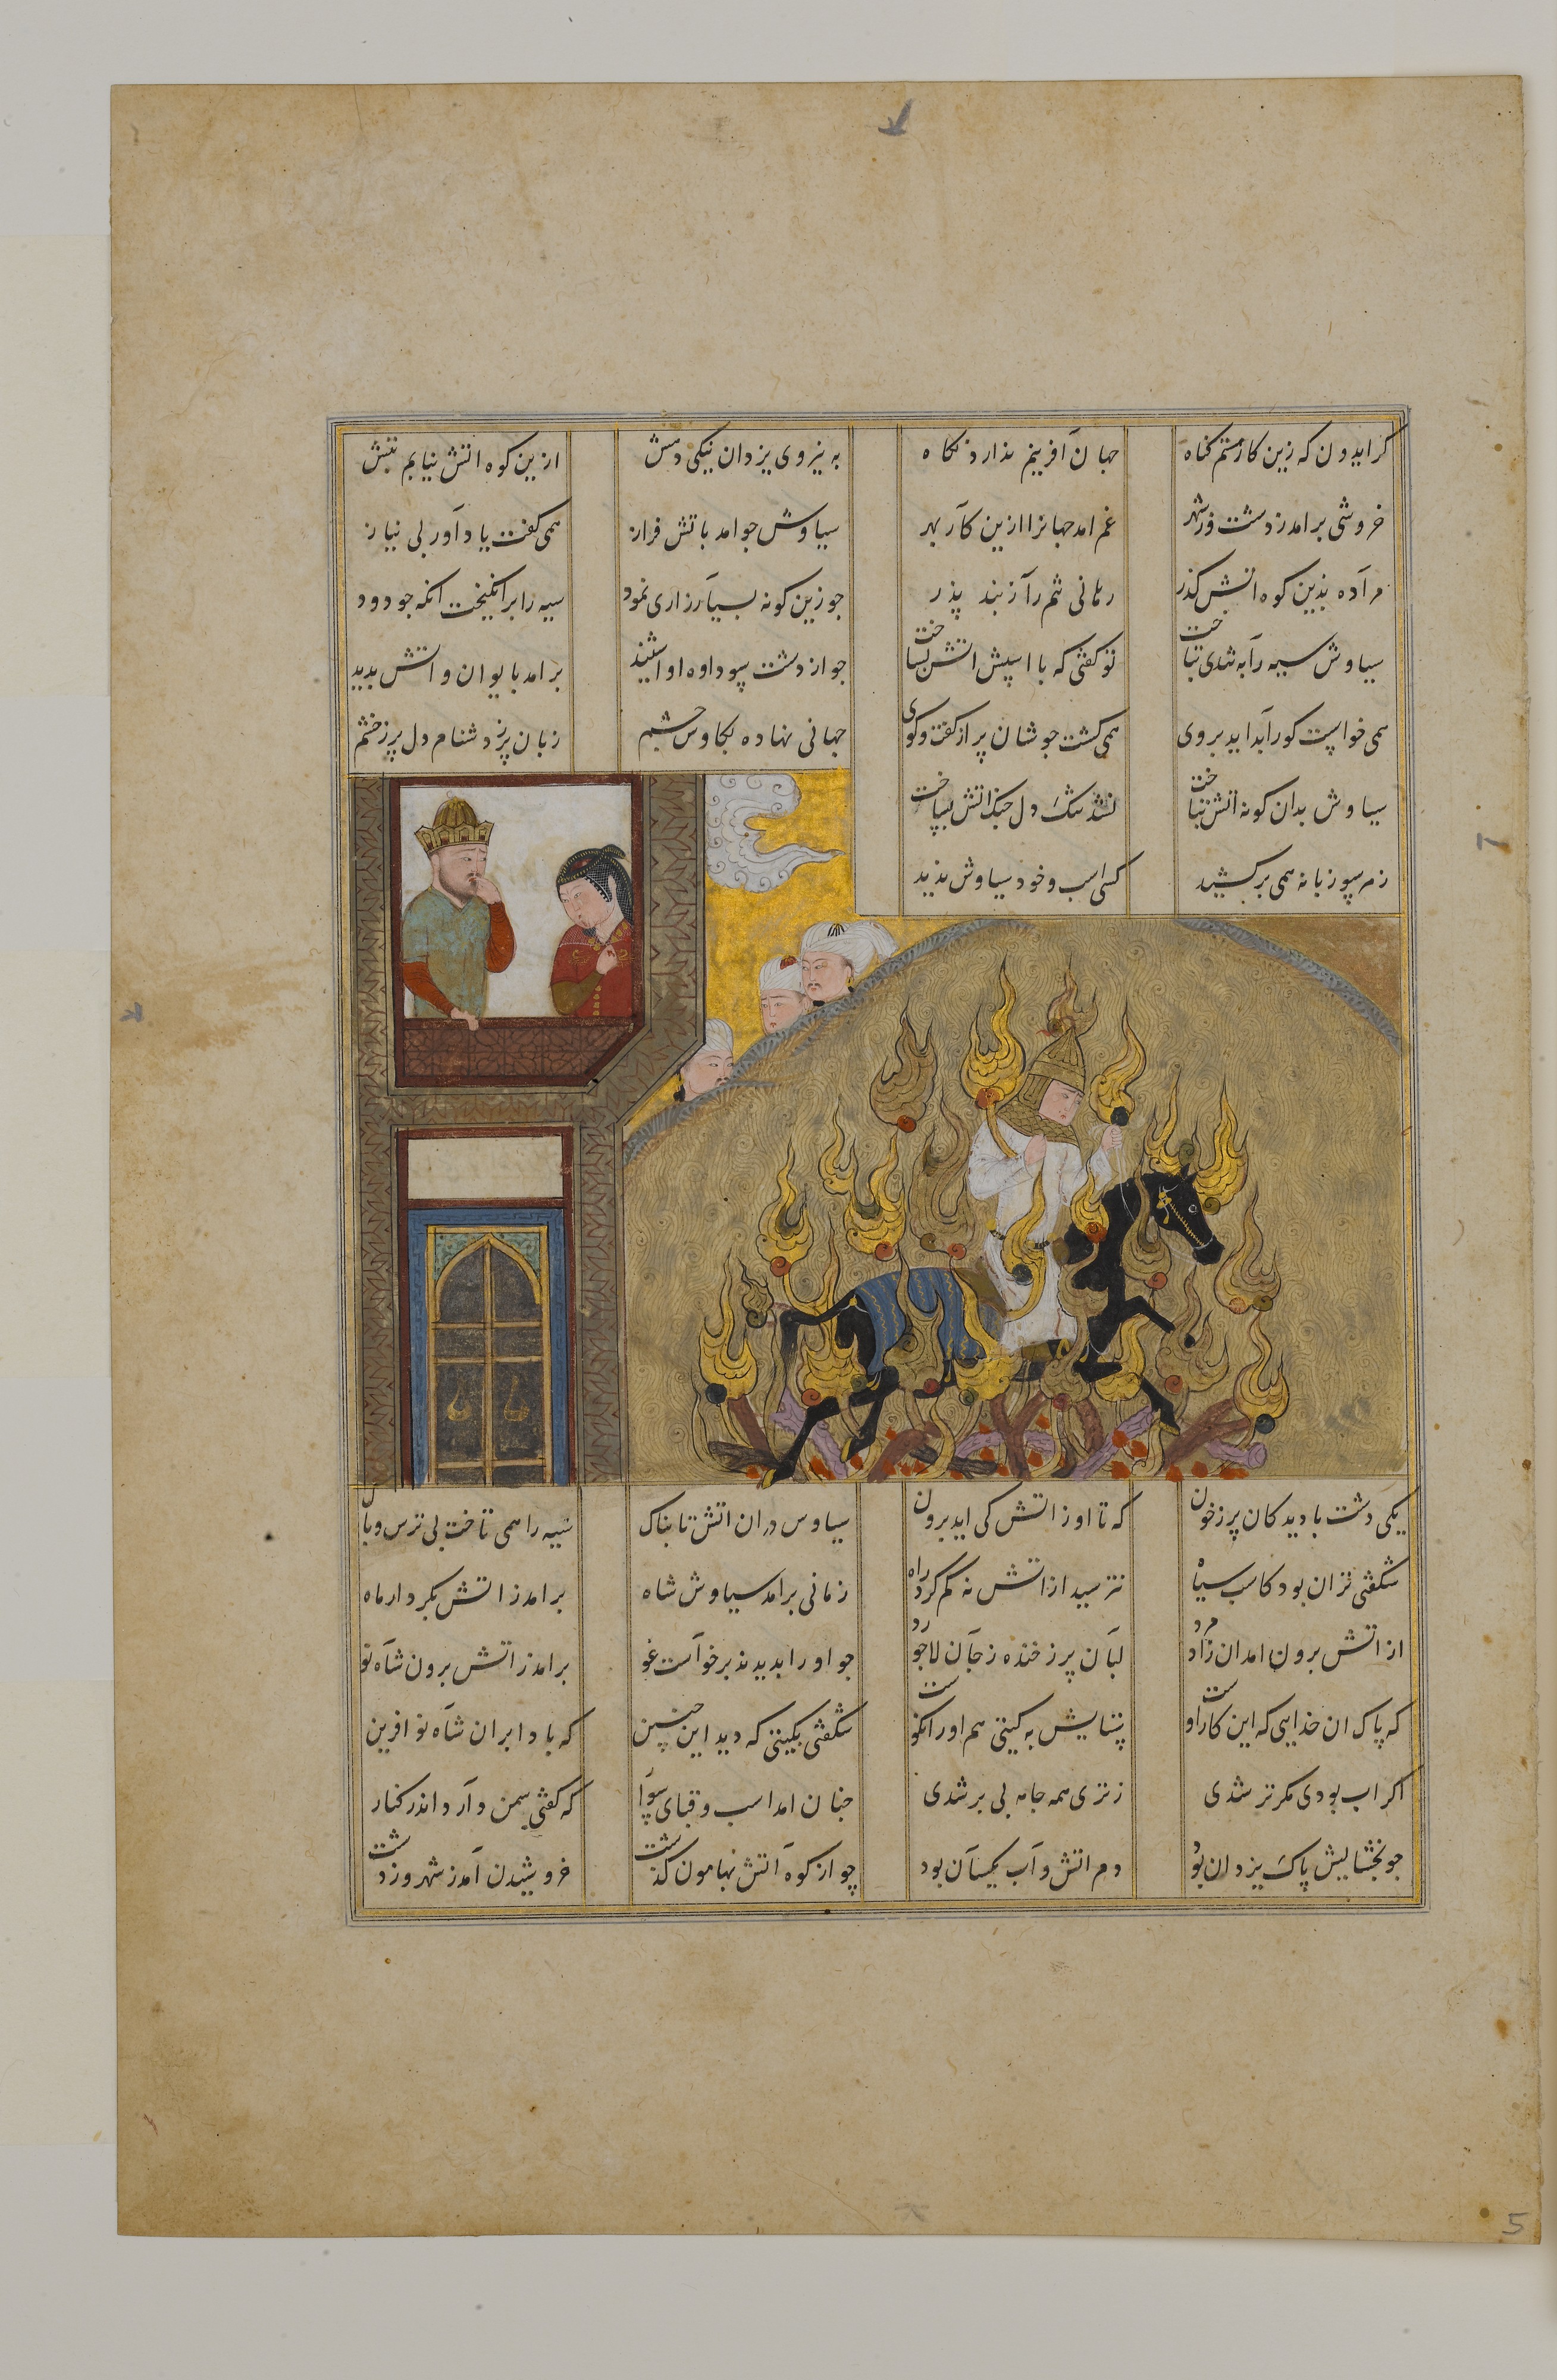 کر ایدون که زین کار هستم کناه جهان آفرینم نذارد نکاه به نیروی یزدان نیکی دهش ازین کوه اتش نیابم تبش
خروشی برامد زدشت و زشهر غم امد جهانرا ازین کار بهر سیاوش جو امد باتش فراز همی کفت یا داور بی نیاز
مرا ده بذین کوه اتش کذر رهائی تنم را زبند پذر جو زین کونه بسیار زاری نمود سیه را برانکیخت انکه جو دود
سیاوش سیه را به تندی بتاخت تو کفتی که با اسپش اتش بساخت جو از دشت سوداوه اوا شنید برامد بایوان و اتش بدید
همی خواست کو را بد اید بروی همی کشت جوشان پر از کفت و کوی جهانی نهاده بکاوس جشم زبان پر ز دشنام دل پر زخشم
سیاوش بدان کونه اتش بتاخت نشد تنک دل جنک اتش بساخت
زهر سو زبانه همی برکشید کسی اسب و خود سیاوش ندید
یکی دشت با دیدکان پر زخون که تا او ز اتش کی اید برون سیاوس دران اتش تابناک سیه را همی تاخت بی ترس و باک
شکفتی تر ان بود کاسب سیاه نترسید از اتش نه کم کرد راه زمانی برامد سیاوش شاه برامد ز اتش بکردار ماه
از اتش برون امد ان زاد مرد لبان پر زخنده زجان لاجورد جو او را بدیدند برخواست غو برامد ز اتش برون شاه نو
که پاک ان خدایی که این کار اوست ستایش به کیتی هم اورا نکوست شکفتی بکیتی که دید این چنین که باد ابران شاه نو افرین
اکر اب بودی مکر تر شدی زتری همه جامه بی بر شدی جنان امد اسب و قبای سوار که کفتی سمن دارد اندر کنار
جو بخشایش پاک یزدان بود دم اتش و آب یکسان بود چو از کوه اتش بهامون کذشت خروشیدن آمد ز شهر و ز دشت
5